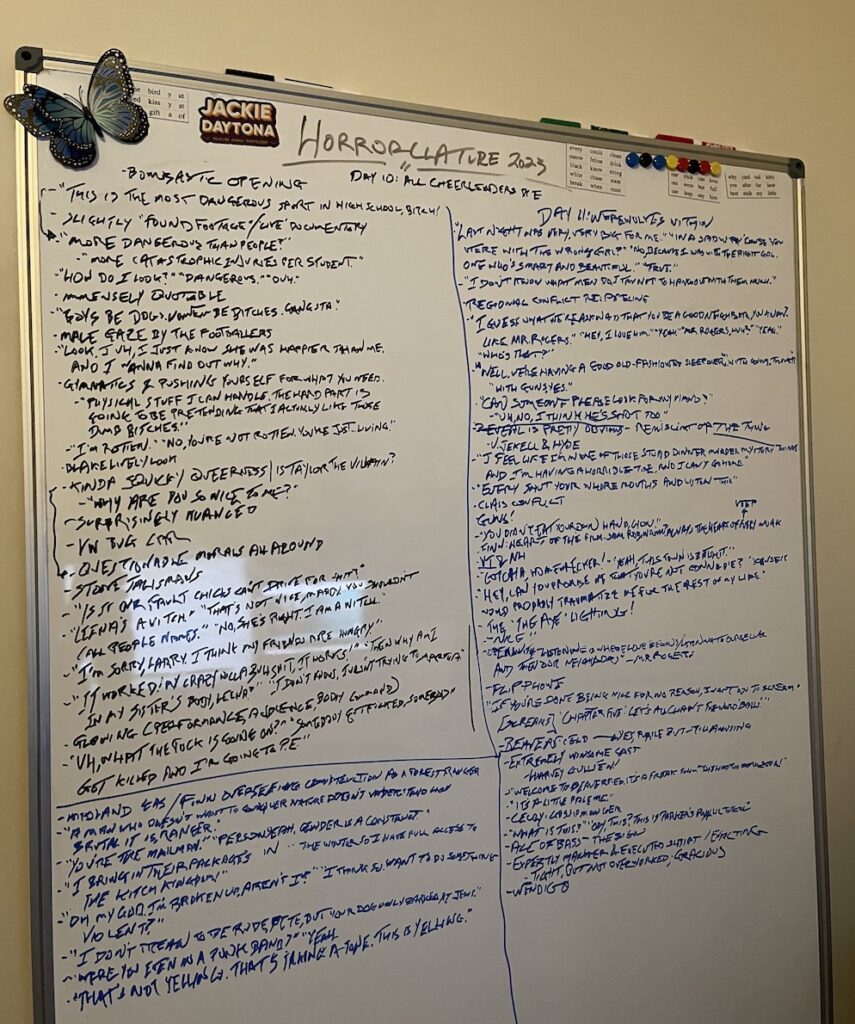 bird y at
kiss y at
gift a of
JACKIE
DAYTONA
HORRORCLATURE 2023
every could clean
meow feline drink
black know string
white chase soon
break when moist
out trick can love
out were but full
our leap say him
why yard tail kitty
you after fur hear
best stalk my little
DAY 10: ALL CHEERLEADERS DIE
- BOMBASTIC OPENING
- "THIS IS THE MOST DANGEROUS SPORT IN HIGH SCHOOL, BITCH!"
- SLIGHTLY "FOUND FOOTAGE"/LIVE DOCUMENTARY
- "MORE DANGEROUS THAN PEOPLE?"
- "MORE CATASTROPHIC INJURIES PER STUDENT."
- "HOW DO I LOOK?" "DANGEROUS." "DUH."
- IMMENSELY QUOTABLE
- "BOYS BE DOGS. WOMEN BE BITCHES. GANGSTA."
- MALE GAZE BY THE FOOTBALLERS
- "LOOK, I UH, I JUST KNOW SHE WAS HAPPIER THAN ME.
AND I WANNA FIND OUT WHY."
- GYMNASTICS & PUSHING YOURSELF FOR WHAT YOU NEED.
- "PHYSICAL STUFF I CAN HANDLE. THE HARD PART IS
GOING TO BE PRETENDING THAT I ACTUALLY LIKE THOSE
DUMB BITCHES."
- "I'M ROTTEN." "NO, YOU'RE NOT ROTTEN. YOU'RE JUST... LIVING."
- BLAKE LIVELY LOOK
- KINDA SQUICKY QUEERNESS/IS TAYLOR THE VILLAIN?
- "WHY ARE YOU SO NICE TO ME?"
- SURPRISINGLY NUANCED
- VW BUG CAR
- QUESTIONABLE MORALS ALL AROUND
- STONE TALISMANS
- "IS IT OUR FAULT CHICKS CAN'T DRIVE FOR SHIT?"
- "LEENA'S A WITCH." "THAT'S NOT NICE, MADDY. YOU SHOULDN'T
CALL PEOPLE NAMES." "NO, SHE'S RIGHT. I AM A WITCH."
- "I'M SORRY, LARRY. I THINK MY FRIENDS ARE HUNGRY."
- "IT WORKED! MY CRAZY WICCA BULLSHIT, IT WORKS!" "THEN WHY AM I
IN MY SISTER'S BODY, LEENA?" "I DON'T KNOW, I WASN'T TRYING TO
- GLOWING (PERFORMANCE, AUDIENCE, BODY
- "UH, WHAT THE FUCK IS GOING ON?" "SOMEBODY GOT FUCKED, SOMEBODY
GOT KILLED AND I'M GOING TO PE."
- MIDLAND GAS/FINN OVERSEEING CONSTRUCTION AS A FOREST RANGER
- "A MAN WHO DOESN'T WANT TO CONQUER NATURE DOESN'T UNDERSTAND HOW
BRUTAL IT IS, RANGER."
- "YOU'RE THE MAILMAN." "PERSON. YEAH, GENDER IS A CONSTRUCT."
- "I BRING IN THEIR PACKAGES IN THE WINTER SO I HAVE FULL ACCESS TO
THE KITCH KINGDOM!"
- "OH MY GOD, I'M BROKEN UP, AREN'T I?" "I THINK SO. WANT TO DO SOMETHING
VIOLENT?"
- "I DON'T MEAN TO BE RUDE, PETE, BUT YOUR DOG ONLY BARKED AT JEWS."
- "WERE YOU EVEN IN A PUNK BAND?" "YEAH."
- "THAT'S NOT YELLING. THAT'S TAKING A TONE. THIS IS YELLING."
DAY 11: WEREWOLVES WITHIN
"LAST NIGHT WAS VERY, VERY BIG FOR ME." "IN A SAD WAY 'CAUSE YOU
WERE WITH THE WRONG GIRL?" "NO, BECAUSE I WAS WITH THE RIGHT GIRL.
ONE WHO'S SMART AND BEAUTIFUL." "TRUE."
- "I DON'T KNOW WHAT MEN DO. I TRY NOT TO HANG OUT WITH THEM MUCH."
- REGIONAL CONFLICT RE: PIPELINE
- "I GUESS WHAT WE'RE ASKING IS THAT YOU BE A GOOD NEIGHBOR, YOU KNOW?
LIKE MR. ROGERS." "HEY, I LOVE HIM." "YEAH." "MR. ROGERS, HUH?" "YEAH."
"WHO'S THAT?"
- "WELL, WE'RE HAVING A GOOD OLD-FASHIONED SLEEPOVER." "WITH GUNS, THOUGH?"
"WITH GUNS, YES."
- "CAN SOMEONE PLEASE LOOK FOR MY HAND?"
- "UH, NO, I THINK HE'S SHOT TOO"
- REVEAL IS PRETTY OBVIOUS - REMINISCENT OF THE THING
- JEKELL & HYDE
- "I FEEL LIKE I'M IN ONE OF THOSE STUPID DINNER MURDER MYSTERY THINGS
AND I'M HAVING A HORRIBLE TIME, AND I CAN'T GO HOME."
- "EVERY SHUT YOUR WHORE MOUTHS AND LISTEN THIS"
- CLASS CONFLICT
GUNS!
- "YOU DIDN'T EAT YOUR OWN HAND, HON."
- FINN: HEART OF THE FILM. SAM RICHARDSON: ALWAYS THE HEART OF EVERY WORK
VEEP
- VT & NH
- "GOTCHA, HOMEFUCKER!" - "YEAH, THIS TOWN IS BATSHIT."
- "HEY, CAN YOU PROMISE ME THAT YOU'RE NOT GONNA DIE?" "'CAUSE IT
WOULD PROBABLY TRAUMATIZE ME FOR THE REST OF MY LIFE."
- THE "THE AXE" LIGHTING!
- NICE
- LISTENING IS WHERE LOVE BEGINS, LISTENING TO OURSELVES
AND THEN OUR NEIGHBORS." - MR. ROGERS
- FLIP PHONE
"IF YOU'RE DONE BEING NICE FOR NO REASON, I WANT YOU TO SCREAM."
[SCREAMS] "CHAPTER FIVE: LET'S ALL CHANT THE WORD BALLS!"
- BEAVERFIELD - JUVENILE BUT STILL AMUSING
- EXTREMELY WINSOME CAST
- HARVEY GUILLEN!
- "WELCOME TO BEAVERFIELD. IT'S A FREAK
- "IT'S A LITTLE PALE
- CECILY: GOSSIPMONGER
- "WHAT IS THIS?" "OH, THIS? THIS IS PARKER'S
- ACE OF BASE - THE SIGN
- EXPERTLY MANAGED & EXECUTED SCRIPT/EXACTING
- TIGHT, BUT NOT OVERWORKED, GRACIOUS
- WENDIGO